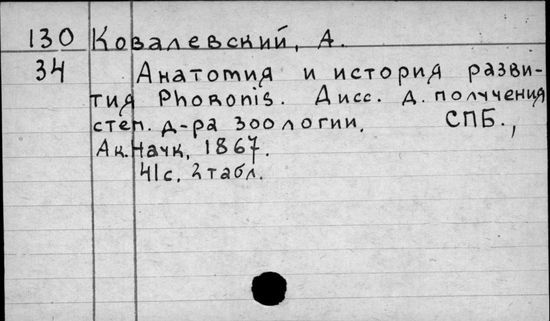 130 Ковалевский, А.
34 Анатомия и история разви-
тия Phoronis. Дисс. д. получения
степ. д-ра зоологии. СПБ.,
Ак. Наук, 1867.
41с, 2 табл.